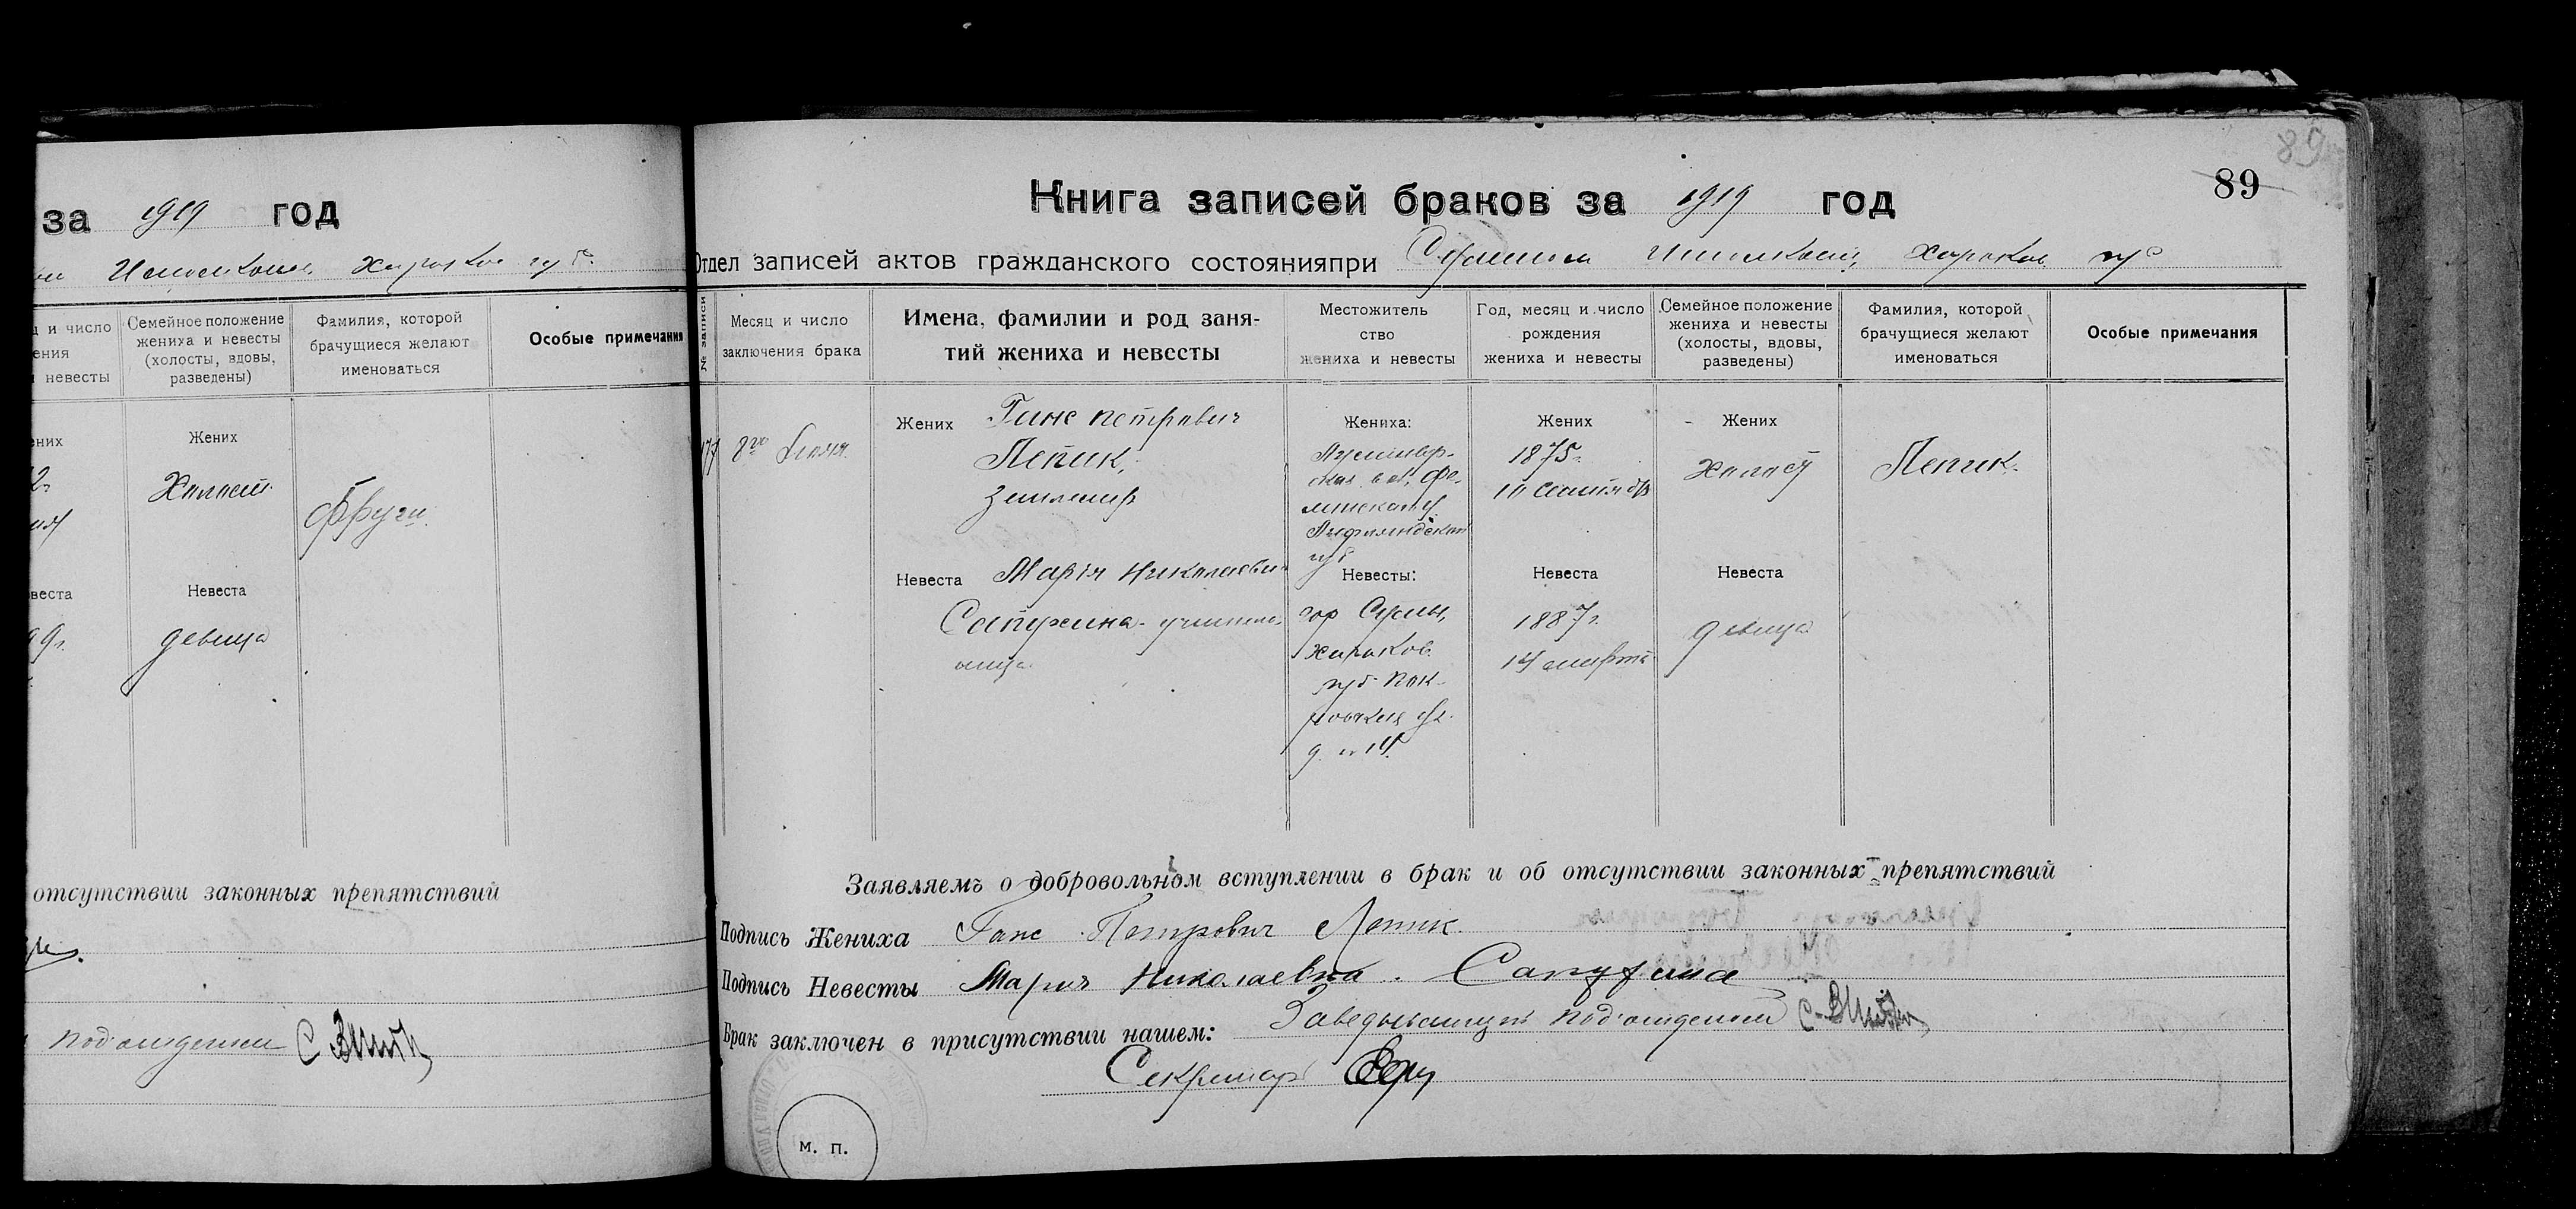 за 1919 год
Харьков губ.
и число
ения
невесты
Семейное положение
жениха и невесты
(холосты, вдовы,
разведены)
Фамилия, которой
брачущиеся желают
именоваться
Особые примечания
Жених
Холост
Невеста
девица
отсутствии законных препятствий
подотделом
89
89
Книга записей браков за 1919 год
Отдел записей актов гражданского состоянияпри Сумском Исполкоме, Харьков губ
№ записи
Месяц и число
заключения брака
Имена, фамилии и род заня-
тий жениха и невесты
Местожитель
ство
жениха и невесты
Год, месяц и число
рождения
жениха и невесты
Семейное положение
жениха и невесты
(холосты, вдовы,
разведены)
Фамилия, которой
брачущиеся желают
именоваться
Особые примечания
177
8го
Жених Ганс Петрович
Лепик,
землемер
Жениха:
Лифляндской
губ
Жених
1875г.
10 сентября
Жених
Холост
Лепик.
Невеста Мария Николаевна
Сапухина - учитель-
ница
Невесты:
гор Сумы,
Харьков.
губ Пок-
ровская ул.
д. № 14.
Невеста
1887г.
14 марта
Невеста
девица
Заявляемъ о добровольном вступлении в брак и об отсутствии законных препятствий
Подпись Жениха Ганс Петрович Лепик.
Подпись Невесты Мария Николаевна Сапухина
Брак заключен в присутствии нашем: Заведывающий подотделом
Секретарь
м. п.